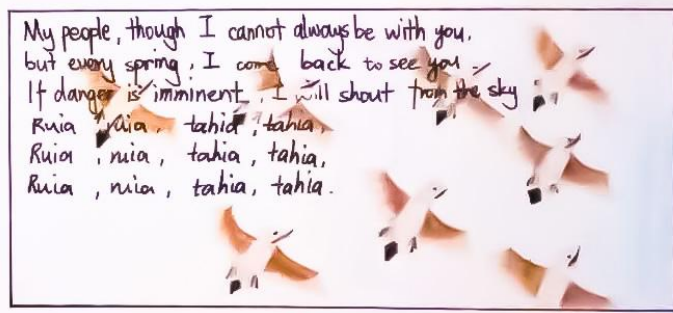 My people, though I cannot always be with you,
but every spring, I come back to see you.
If danger is imminent, I will shout from the sky
Ruia, ruia, tahia, tahia,
Ruia, ruia, tahia, tahia,
Ruia, ruia, tahia, tahia.